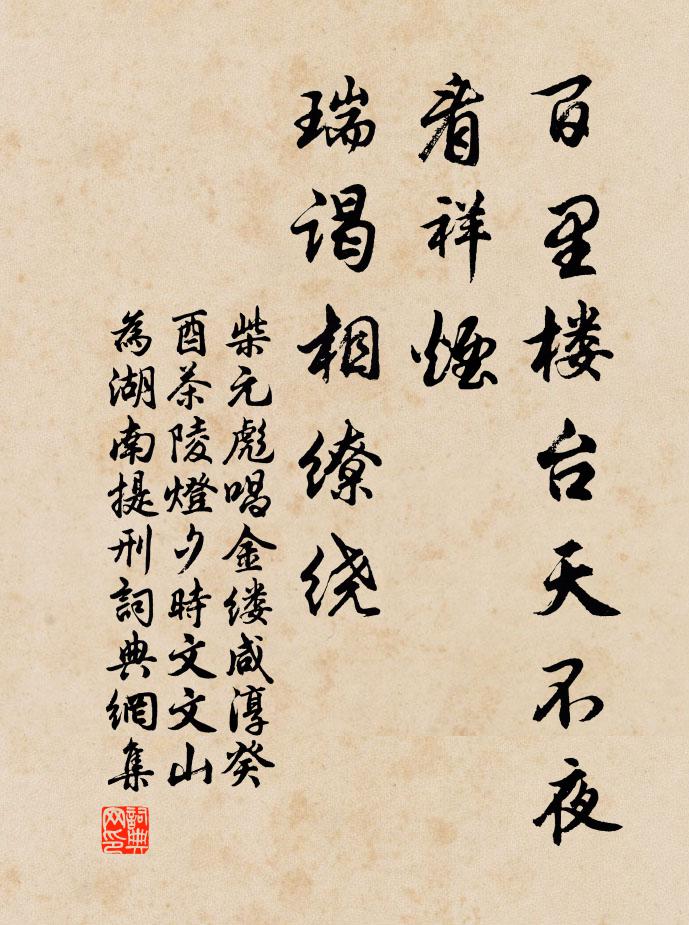 百里楼台天不夜
看祥煙
瑞谒相缭绕
柴元彪唱金缕咸淳癸
酉茶陵燈夕時文文山
為湖南提刑詞典網集
詞典网印